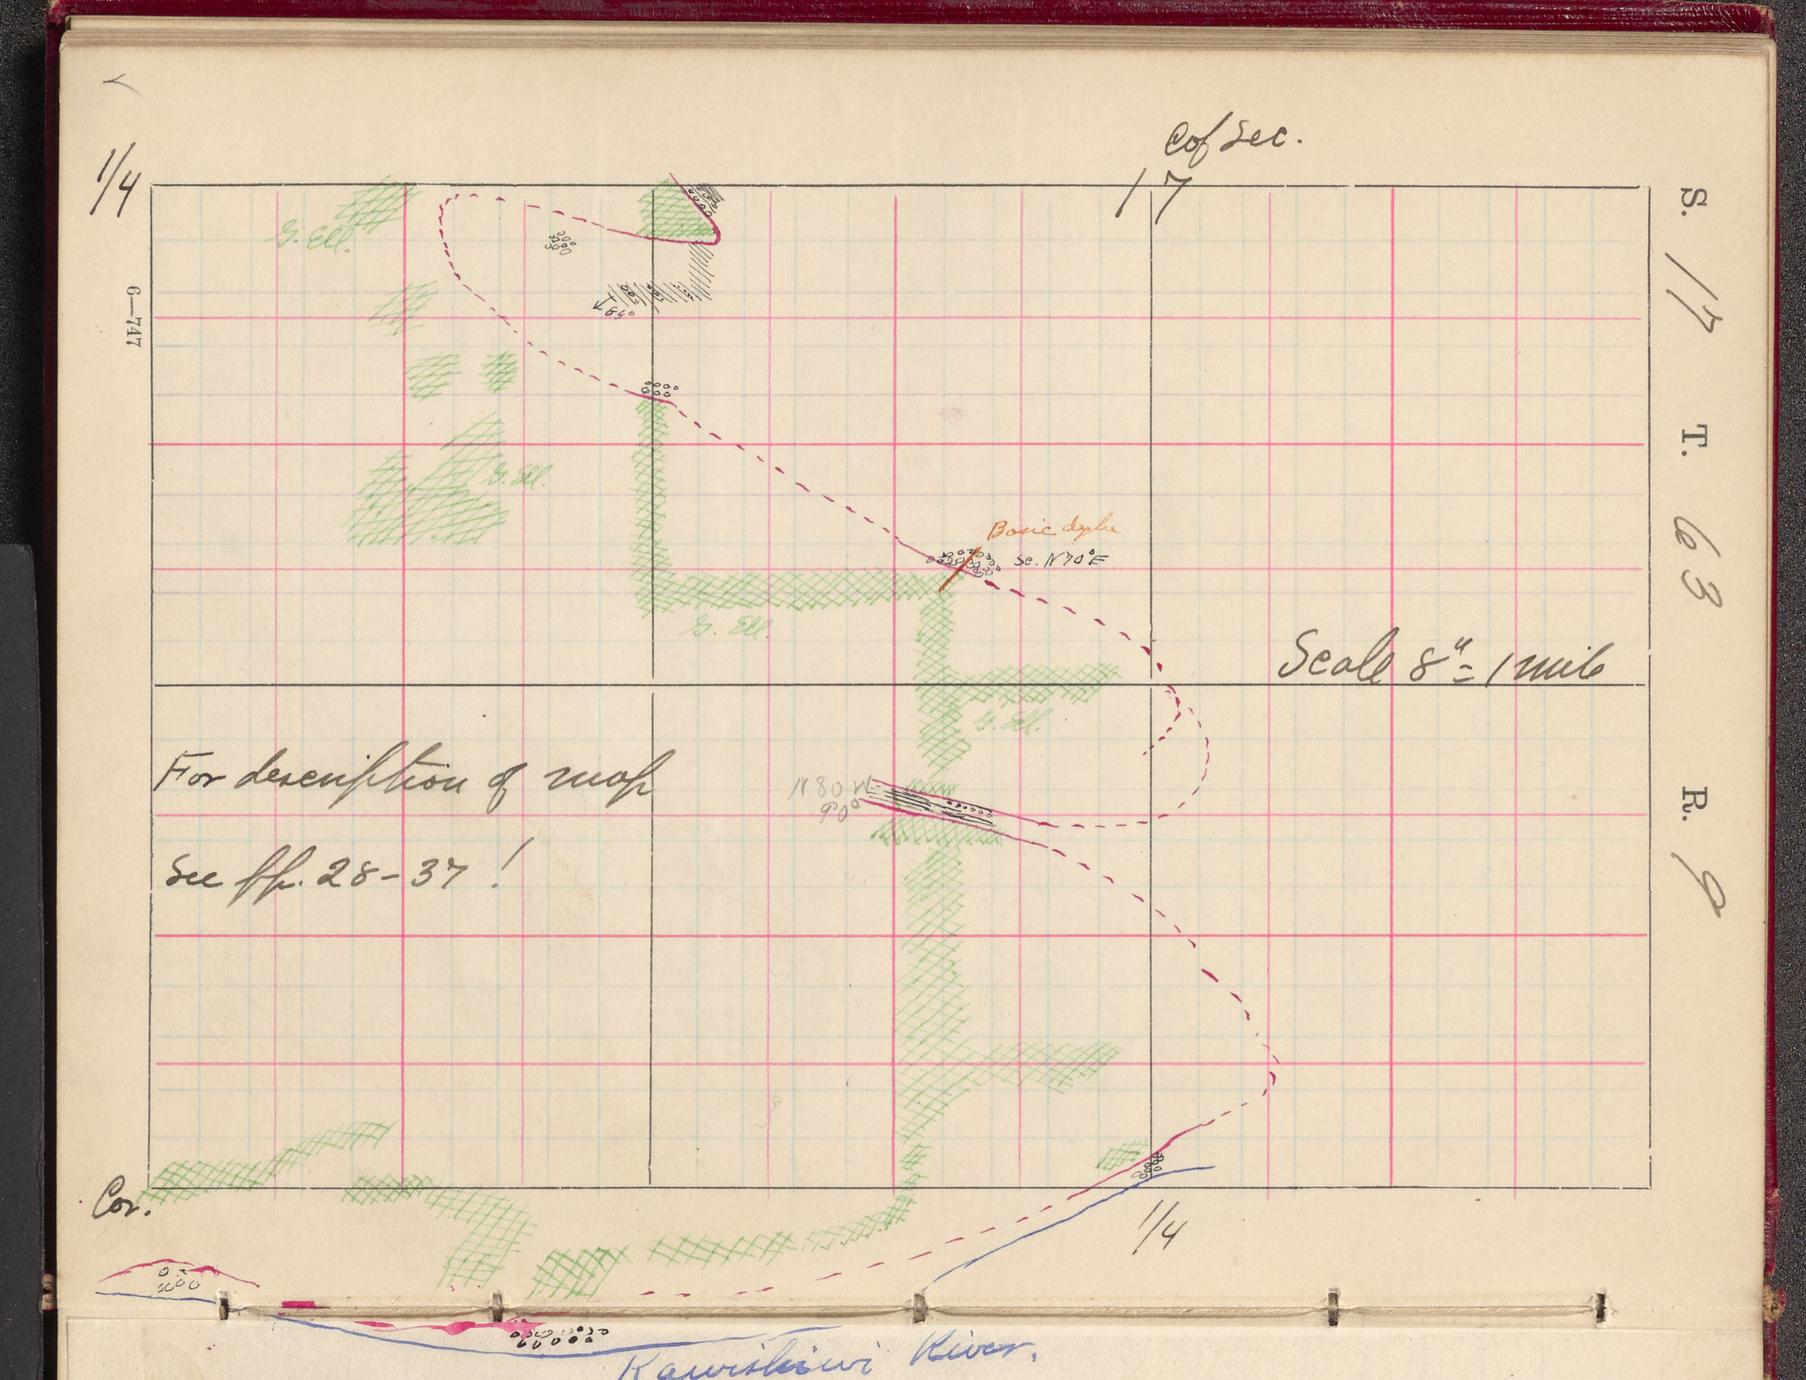 C of Sec.
17
1/4
G. Ell.
6—747
S. 17 T. 63 R. 9
85°
G. Ell.
Basic dyke
Sc. N70°E
G. Ell.
Scale 8" = 1 mile
G. Ell.
For description of map
N80W
90°
See pp. 28-37 !
Cor.
1/4
Kawishiwi River.